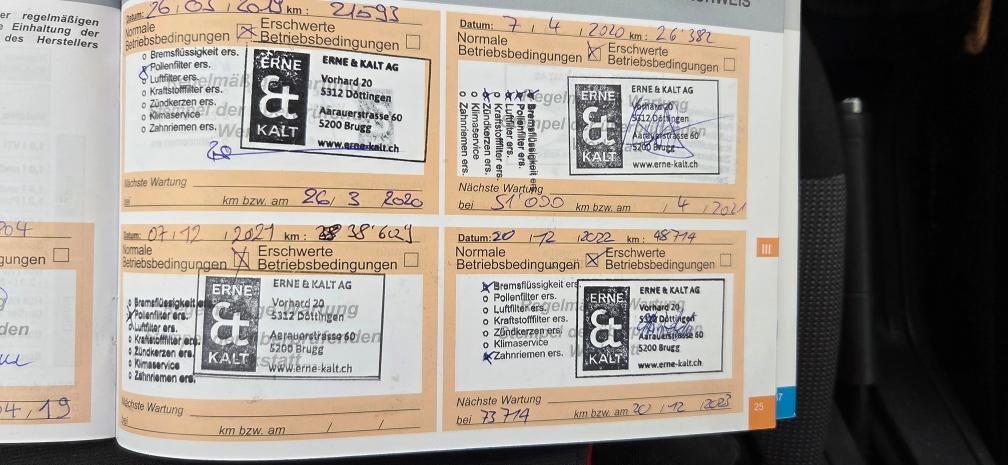 er regelmäßigen
e Einhaltung der
des Herstellers
Datum: 26 / 03 / 2019 km : 21593
Normale
Betriebsbedingungen
Erschwerte
Betriebsbedingungen
Bremsflüssigkeit ers.
Pollenfilter ers.
Luftfilter ers.
Kraftstofffilter ers.
Zündkerzen ers.
Klimaservice
Zahnriemen ers.
ERNE
&
KALT
ERNE & KALT AG
Vorhard 20
5312 Döttingen
Aarauerstrasse 60
5200 Brugg
www.erne-kalt.ch
Nächste Wartung
bei km bzw. am 26 / 3 2020
Datum: 7 / 4 / 2020 km : 26'382
Normale
Betriebsbedingungen
Erschwerte
Betriebsbedingungen
Bremsflüssigkeit ers.
Pollenfilter ers.
Luftfilter ers.
Kraftstofffilter ers.
Zündkerzen ers.
Klimaservice
Zahnriemen ers.
ERNE
&
KALT
ERNE & KALT AG
Vorhard 20
5312 Döttingen
Aarauerstrasse 60
5200 Brugg
www.erne-kalt.ch
Nächste Wartung
bei 51'000 km bzw. am / 4 / 2021
Datum: 07 / 12 / 2021 km : 38'609
Normale
Betriebsbedingungen
Erschwerte
Betriebsbedingungen
Bremsflüssigkeit ers.
Pollenfilter ers.
Luftfilter ers.
Kraftstofffilter ers.
Zündkerzen ers.
Klimaservice
Zahnriemen ers.
ERNE
&
KALT
ERNE & KALT AG
Vorhard 20
5312 Döttingen
Aarauerstrasse 60
5200 Brugg
www.erne-kalt.ch
Nächste Wartung
bei km bzw. am / /
Datum: 20 / 12 / 2022 km : 48714
Normale
Betriebsbedingungen
Erschwerte
Betriebsbedingungen
Bremsflüssigkeit ers.
Pollenfilter ers.
Luftfilter ers.
Kraftstofffilter ers.
Zündkerzen ers.
Klimaservice
Zahnriemen ers.
ERNE
&
KALT
ERNE & KALT AG
Vorhard 20
5312 Döttingen
Aarauerstrasse 60
5200 Brugg
www.erne-kalt.ch
Nächste Wartung
bei 73714 km bzw. am 20 / 12 / 2023
III
25